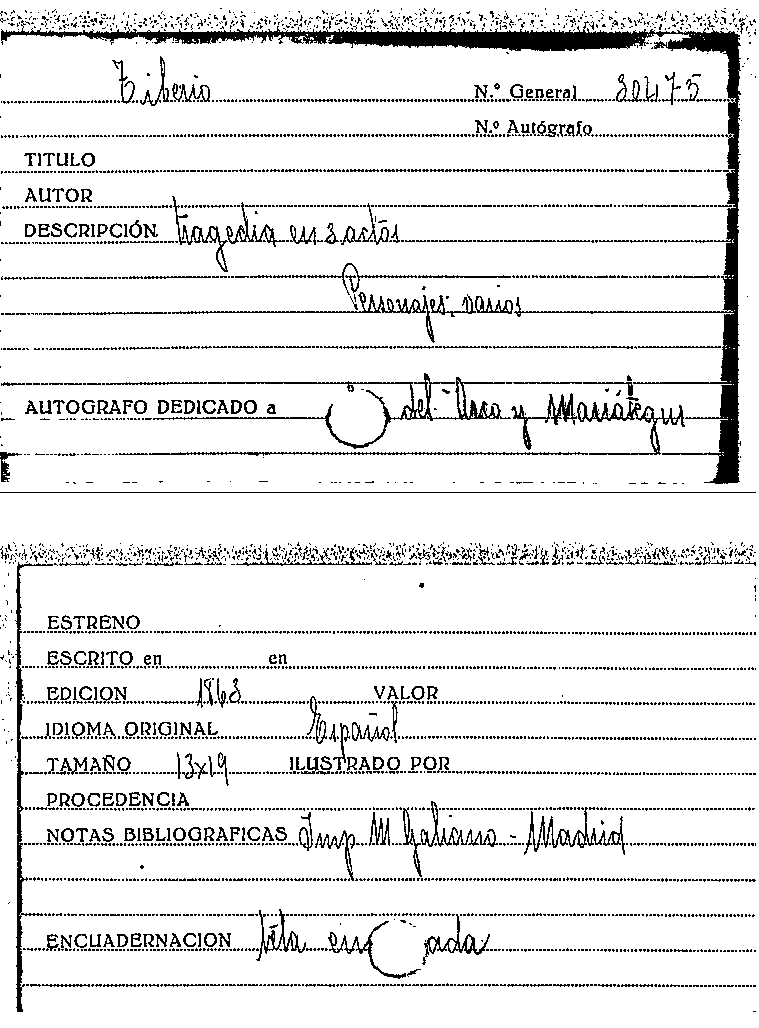 Tiberio N.º General 30475
N.º Autógrafo
TITULO
AUTOR
DESCRIPCIÓN tragedia en 3 actos
Personajes, varios
AUTOGRAFO DEDICADO a del Arco y Mariátegui
ESTRENO
ESCRITO en en
EDICION 1863 VALOR
IDIOMA ORIGINAL Español
TAMAÑO 13x19 ILUSTRADO POR
PROCEDENCIA
NOTAS BIBLIOGRAFICAS Imp M Galiano - Madrid
ENCUADERNACION tela en ada